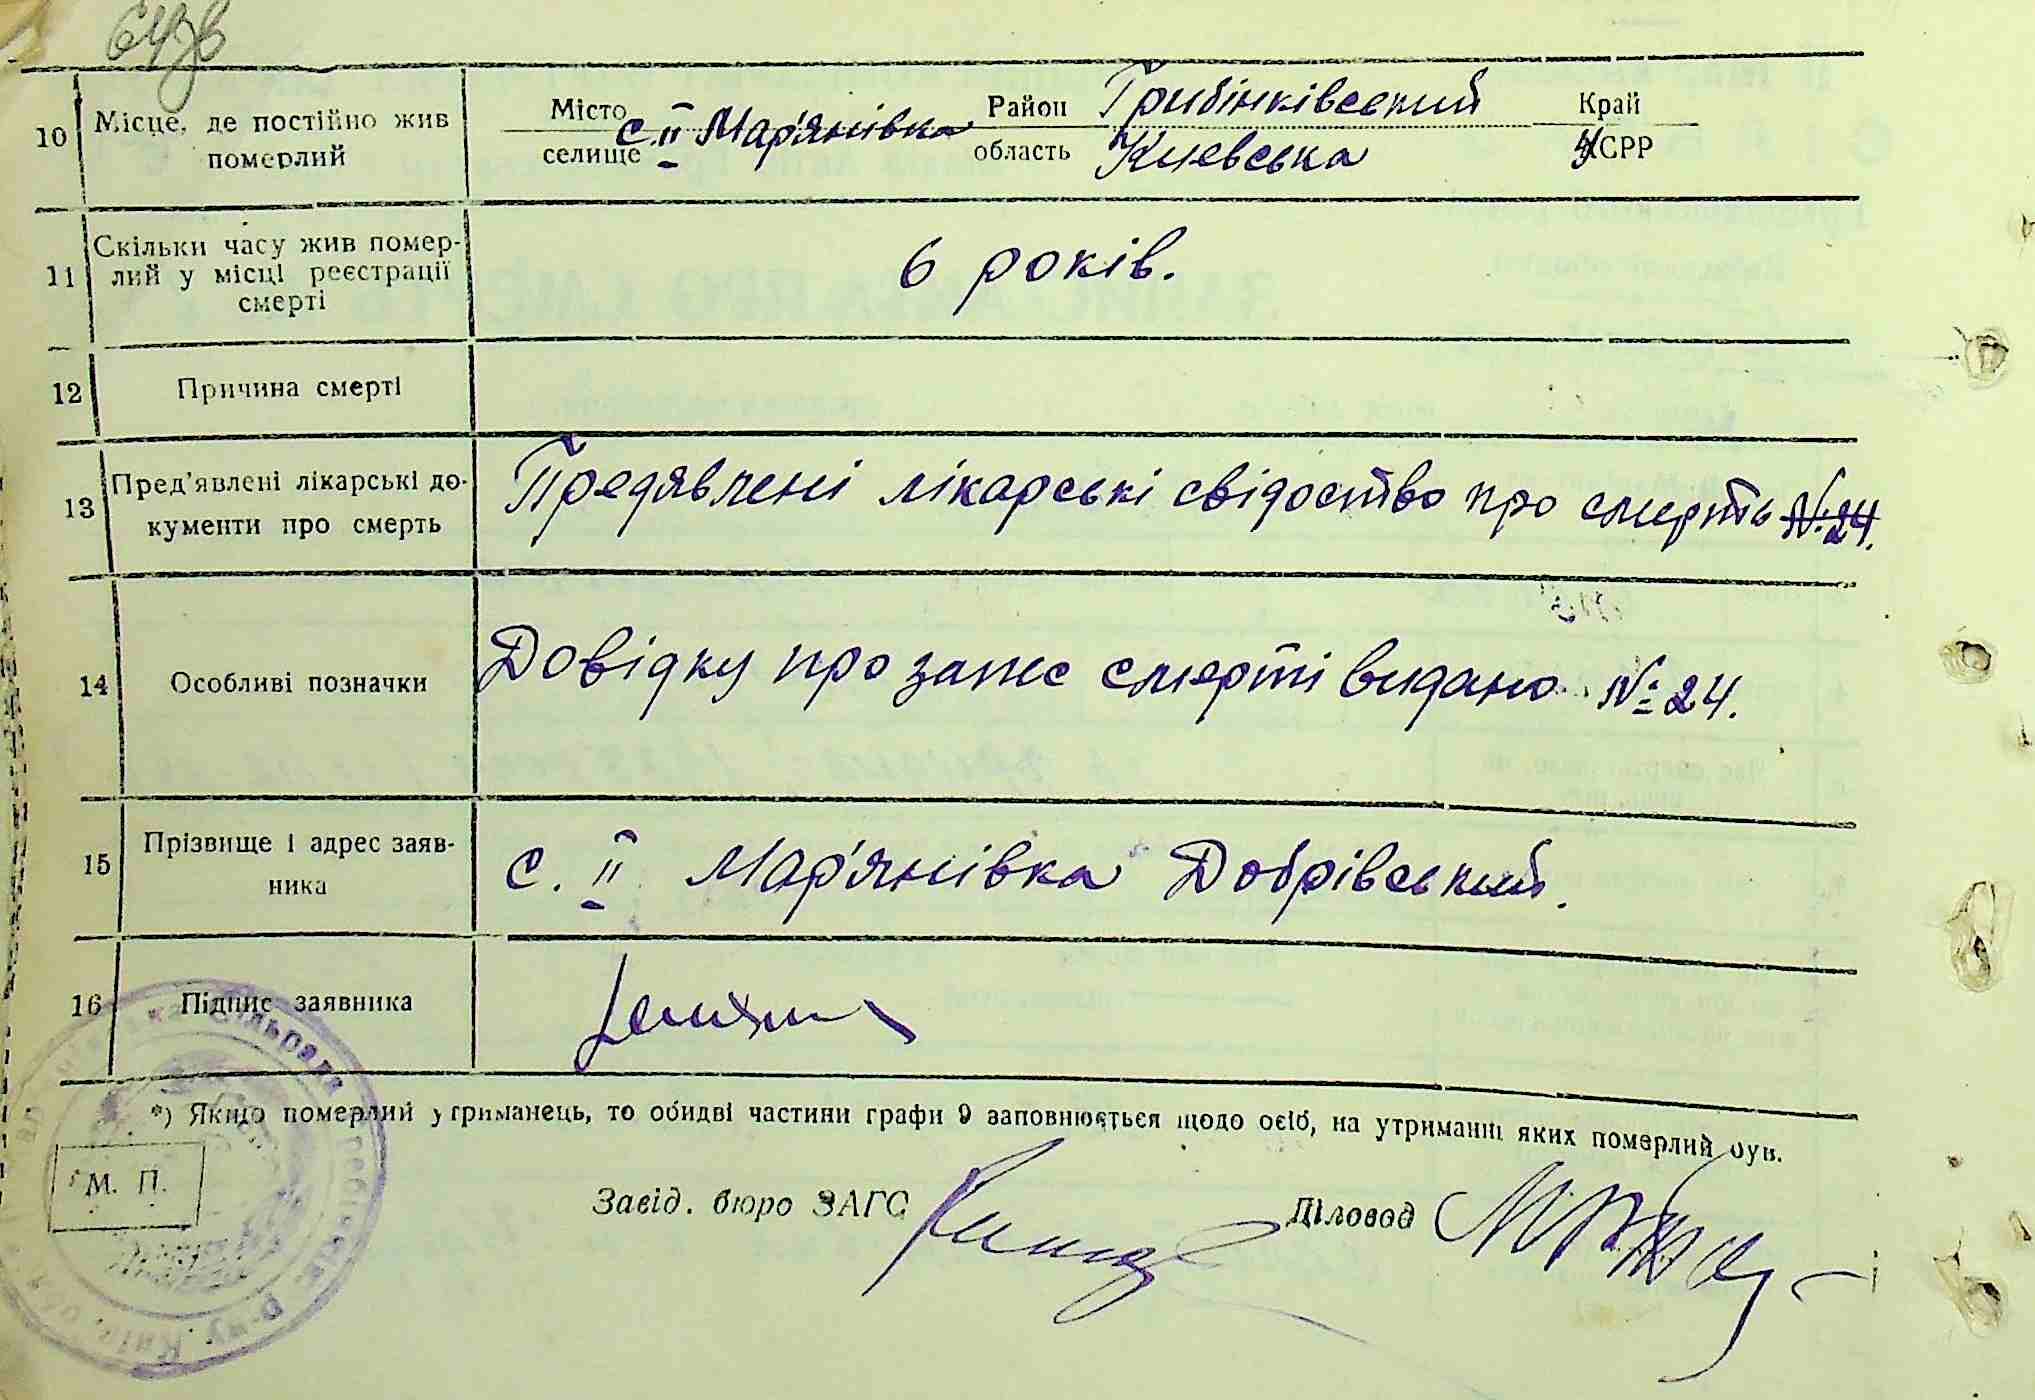 10 Місце, де постійно жив
померлий
Місто
селище
с. ІІ Мар'янівка
Район Грибінківський
область Киевська
Край
УСРР
11 Скільки часу жив помер-
лий у місці реєстрації
смерті
6 років.
12 Причина смерті
13 Пред'явлені лікарські до-
кументи про смерть
Предявлені лікарські свідоство про смерть №24.
14 Особливі позначки
Довідку про запис смерті видано №24.
15 Прізвище і адрес заяв-
ника
с. ІІ Мар'янівка Добрівський.
16 Підпис заявника
*) Якщо померлий утриманець, то обидві частини графи 9 заповнюється щодо осіб, на утриманні яких померлий був.
М. П.
Завід. бюро ЗАГС
Діловод
Сільрада
р-ну Київ. обл.